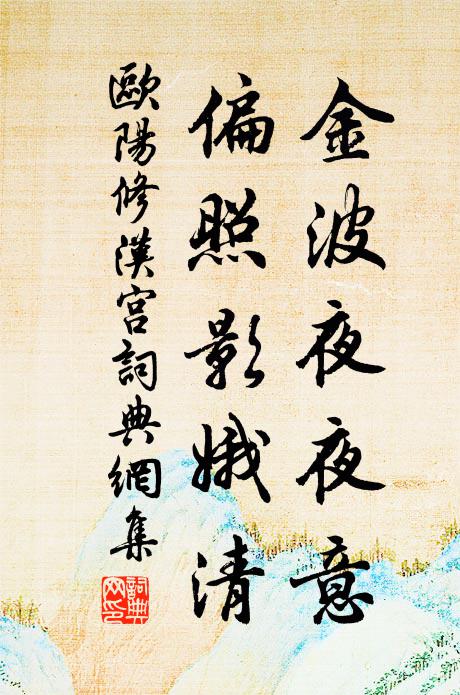 金波夜夜意
偏照影娥清
歐陽修漢宮詞典網集
詞典